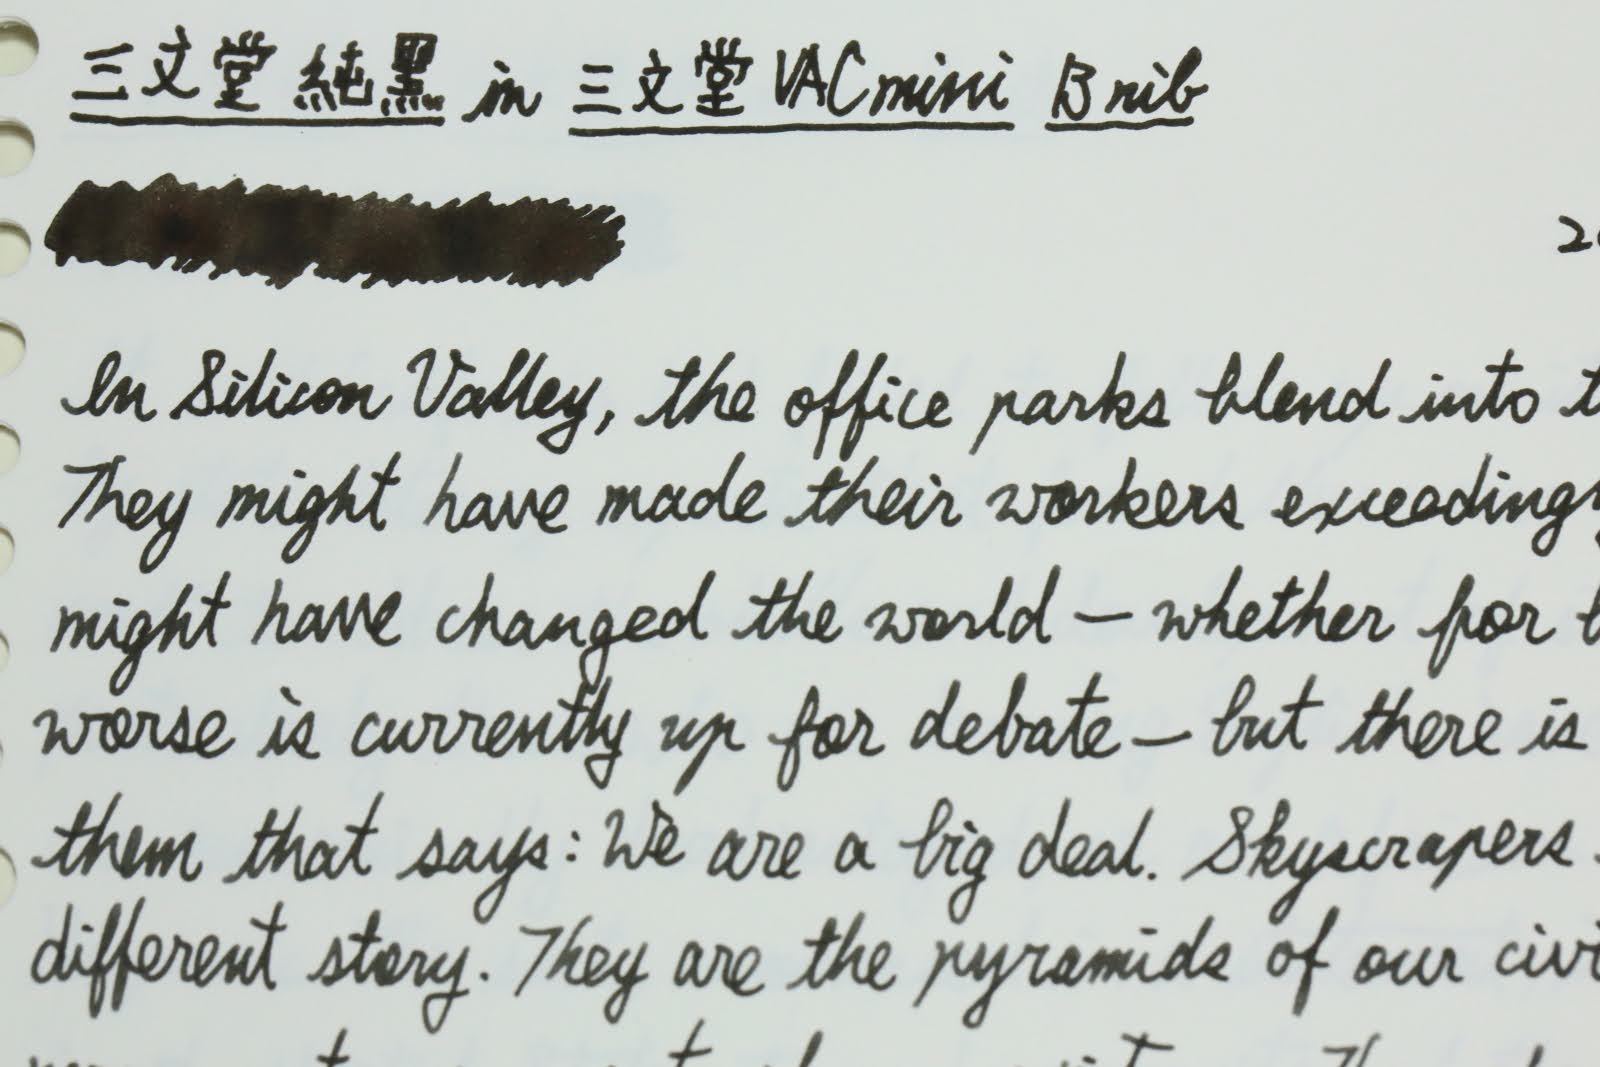 三文堂 純黒 in 三文堂 VAC mini B nib
In Silicon Valley, the office parks blend into
They might have made their workers exceedingly
might have changed the world – whether for
worse is currently up for debate – but there is
them that says: We are a big deal. Skyscrapers
different story. They are the pyramids of our